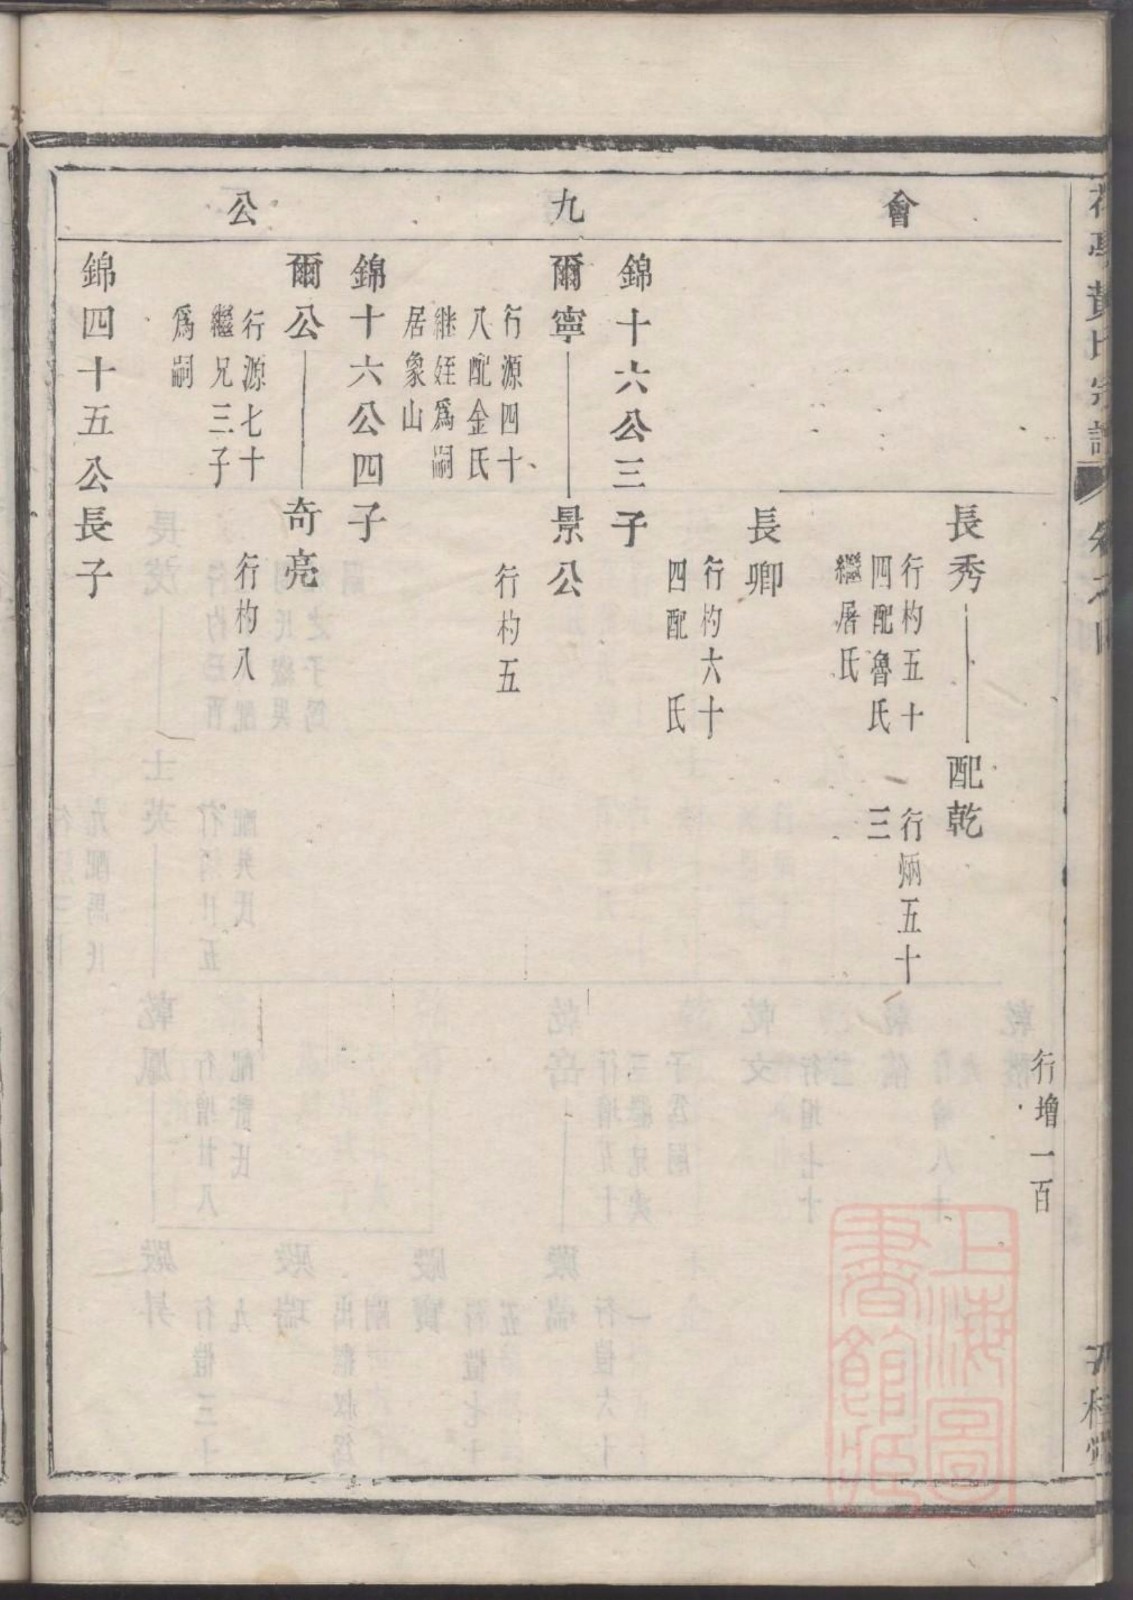 會九公
行增一百
長秀
行杓五十
四配魯氏
繼屠氏
配乾
行炳五十
三
長卿
行杓六十
四配 氏
錦十六公三子
爾寧
行源四十
八配金氏
継姪為嗣
居象山
景公
行杓五
錦十六公四子
爾公
行源七十
繼兄三子
為嗣
奇亮
行杓八
錦四十五公長子
黃氏宗譜
卷之四
上海圖
書館藏